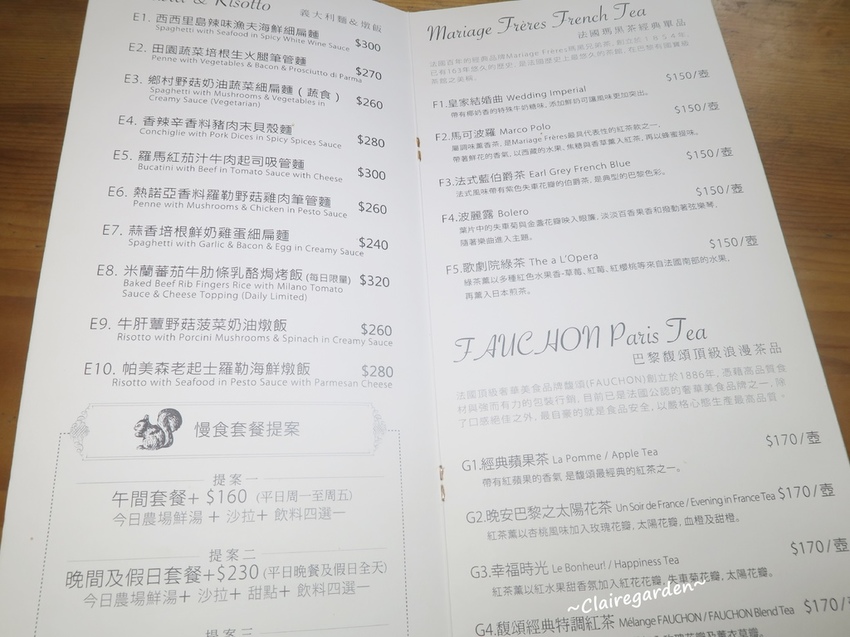 & Risotto 義大利麵&燉飯
E1. 西西里島辣味漁夫海鮮細扁麵
Spaghetti with Seafood in Spicy White Wine Sauce $300
E2. 田園蔬菜培根生火腿筆管麵
Penne with Vegetables & Bacon & Prosciutto di Parma $270
E3. 鄉村野菇奶油蔬菜細扁麵(蔬食)
Spaghetti with Mushrooms & Vegetables in $260
Creamy Sauce (Vegetarian)
E4. 香辣辛香料豬肉末貝殼麵
Conchiglie with Pork Dices in Spicy Spices Sauce $280
E5. 羅馬紅茄汁牛肉起司吸管麵
Bucatini with Beef in Tomato Sauce with Cheese $300
E6. 熱諾亞香料羅勒野菇雞肉筆管麵
Penne with Mushrooms & Chicken in Pesto Sauce $260
E7. 蒜香培根鮮奶雞蛋細扁麵
Spaghetti with Garlic & Bacon & Egg in Creamy Sauce $240
E8. 米蘭蕃茄牛肋條乳酪焗烤飯 (每日限量) $320
Baked Beef Rib Fingers Rice with Milano Tomato
Sauce & Cheese Topping (Daily Limited)
E9. 牛肝蕈野菇菠菜奶油燉飯 $260
Risotto with Porcini Mushrooms & Spinach in Creamy Sauce
E10. 帕美森老起士羅勒海鮮燉飯 $280
Risotto with Seafood in Pesto Sauce with Parmesan Cheese
慢食套餐提案
提案一
午間套餐+ $160 (平日周一至周五)
今日農場鮮湯 + 沙拉+ 飲料四選一
提案二
晚間及假日套餐+$230 (平日晚餐及假日全天)
今日農場鮮湯 + 沙拉+ 甜點+ 飲料四選一
提案三
Mariage Frères French Tea
法國瑪黑茶經典單品
F1.皇家結婚曲 Wedding Imperial $150/壺
帶有椰奶香的特殊牛奶糖味, 添加鮮奶可讓風味更加突出。
F2.馬可波羅 Marco Polo $150/壺
單調味薰香茶, 是Mariage Frères最具代表性的紅茶款之一,
帶著鮮花的香氣, 以西藏的水果, 焦糖與香草薰入紅茶, 再以蜂蜜提味。
F3.法式藍伯爵茶 Earl Grey French Blue $150/壺
法式風味帶有紫色矢車花瓣的伯爵茶, 是典型的巴黎色彩。
F4.波麗露 Bolero $150/壺
葉片中的矢車菊與金盞花瓣映入眼簾, 淡淡百香果香和撥動著弦樂琴,
隨著樂曲進入主題。
F5.歌劇院綠茶 The a L'Opera $150/壺
綠茶薰以多種紅色水果香-草莓, 紅莓, 紅櫻桃等來自法國南部的水果,
再薰入日本煎茶。
FAUCHON Paris Tea
巴黎馥頌頂級浪漫茶品
法國頂級奢華美食品牌馥頌(FAUCHON)創立於1886年, 憑藉高品質食
材與強而有力的包裝行銷, 目前已是法國公認的奢華美食品牌之一, 除
了口感絕佳之外, 最自豪的就是食品安全, 以嚴格心態生產最高品質。
G1.經典蘋果茶 La Pomme / Apple Tea $170/壺
帶有紅蘋果的香氣 是馥頌最經典的紅茶之一。
G2.晚安巴黎之太陽花茶 Un Soir de France / Evening in France Tea $170/壺
紅茶薰以杏桃風味加入玫瑰花瓣, 太陽花瓣, 血橙及甜橙。
G3.幸福時光 Le Bonheur! / Happiness Tea $170/壺
紅茶薰以紅水果甜香氛加入紅花花瓣, 矢車菊花瓣, 太陽花瓣。
G4.馥頌經典特調紅茶 Mélange FAUCHON / FAUCHON Blend Tea $170/壺
~Clairegarden~